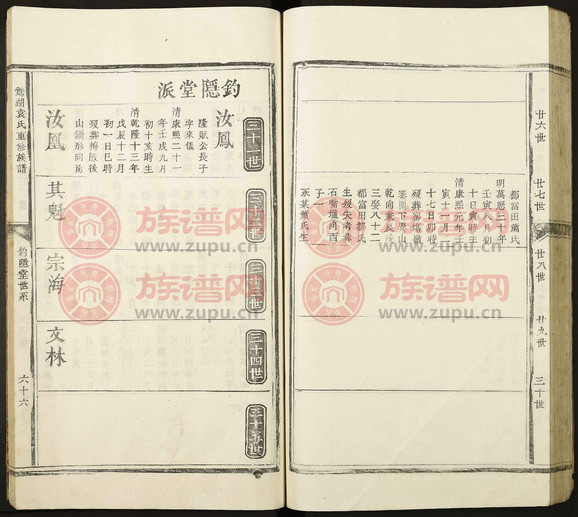 廿六世
廿七世
廿八世
廿九世
三十世
都富田蕭氏
明萬曆三十年
壬寅八月初
十日寅時生
清康熙元年壬
寅十二月二
十七日卯時
乾向葉氏
三娶八十二
都富田郭氏
生歿失考葬
石嘴壠向酉
子一
永某蕭氏生
釣隱堂派
三十一世
三十二世
三十三世
三十四世
三十五世
汝鳳
隆賦公長子
字來儀
清康熙二十一
年壬戌九月
初十亥時生
清乾隆三年
戊辰十二月
初一日巳時
歿葬梅皈後
山鍋形同萬
汝凰
其魁
宗海
文林
袁氏重修族譜
釣隱堂世系
六十六
族谱网
www.zupu.cn
族谱网
www.zupu.cn
族谱网
www.zupu.cn
族谱网
www.zupu.cn